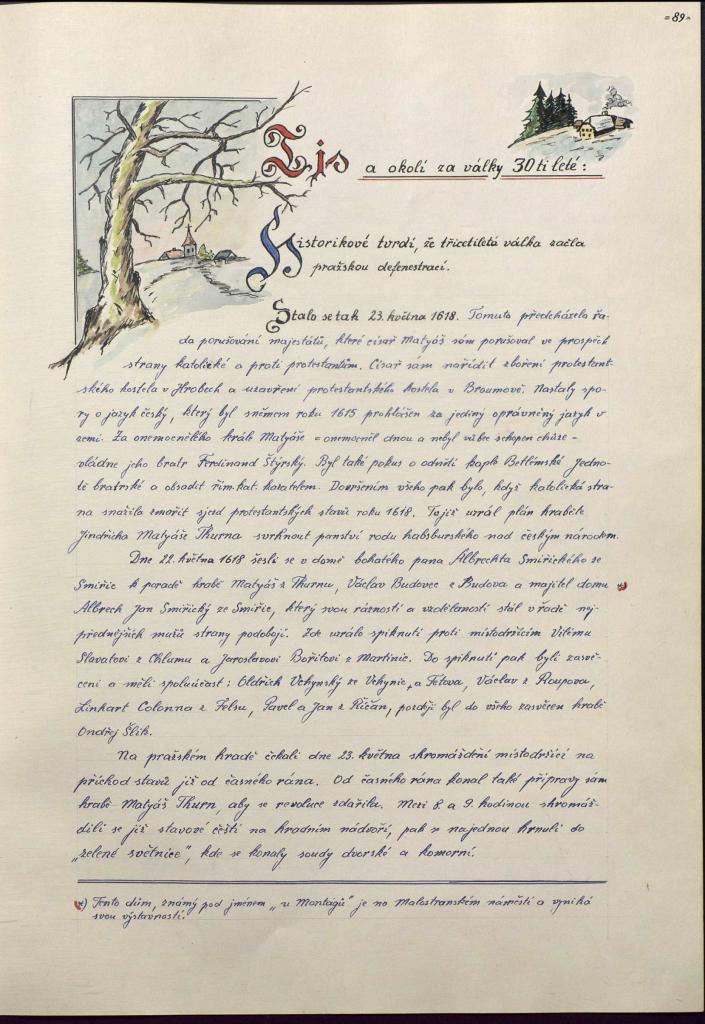 = 89 =
Tis a okolí za války 30ti leté :
Historikové tvrdí, že třicetiletá válka začla
pražskou defenestrací.
Stalo se tak 23. května 1618. Tomuto předcházela řa-
da porušování majestátů, které císař Matyáš sám porušoval ve prospěch
strany katolické a proti protestantům. Císař sám nařídil zboření protestant-
ského kostela v Hrobech a uzavření protestantského kostela v Broumově. Nastaly spo-
ry o jazyk český, který byl sněmem roku 1615 prohlášen za jediný oprávněný jazyk v
zemi. Za onemocnělého krále Matyáše = onemocněl dnou a nebyl vůbec schopen chůze -
vládne jeho bratr Ferdinand Štýrský. Byl také pokus o odnětí kaple Betlémské Jedno-
tě bratrské a obsadit řím. kat. kazatelem. Dovršením všeho pak bylo, když katolická stra-
na snažila zmařit sjezd protestantských stavů roku 1618. To již uzrál plán hraběte
Jindřicha Matyáše Thurna svrhnout panství rodu habsburského nad českým národem.
Dne 22. května 1618 sešli se v domě bohatého pana Albrechta Smiřického ze
Smiřic k poradě hrabě Matyáš z Thurnu, Václav Budovec z Budova a majitel domu x)
Albrech Jan Smiřický ze Smiřic, který svou rázností a vzdělaností stál v řadě nej-
přednějších mužů strany podobojí. Zde uzrálo spiknutí proti místodržícím Vilému
Slavatovi z Chlumu a Jaroslavovi Bořitovi z Martinic. Do spiknutí pak byli zasvě-
ceni a měli spoluúčast : Oldřich Vchynský ze Vchynic a Tetova, Václav z Roupova,
Linhart Colonna z Felsu, Pavel a Jan z Říčan, později byl do všeho zasvěcen hrabě
Ondřej Šlik.
Na pražském hradě čekali dne 23. května shromáždění místodržící na
příchod stavů již od časného rána. Od časného rána konal také přípravy sám
hrabě Matyáš Thurn, aby se revoluce zdařila. Mezi 8 a 9. hodinou shromáž-
dili se již stavové čeští na hradním nádvoří, pak se najednou hrnuli do
„zelené světnice", kde se konaly soudy dvorské a komorní.
x) Tento dům, známý pod jménem „u Montágů" je na Malostranském náměstí a vyniká
svou výstavností.